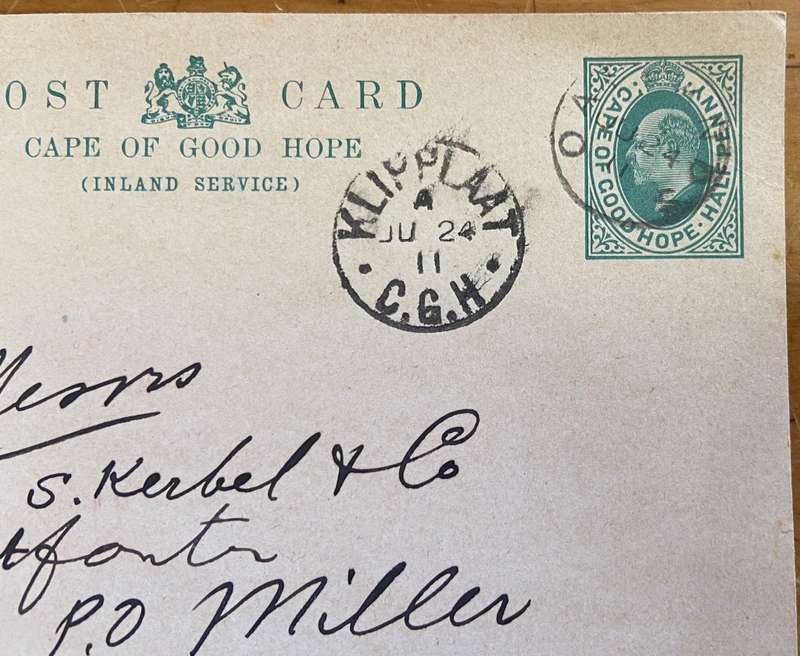 OST CARD
CAPE OF GOOD HOPE
(INLAND SERVICE)
CAPE OF GOOD HOPE · HALFPENNY ·
KLIPPLAAT
A
JU 24
11
C.G.H.
S. Kerbel & Co
P.O Miller